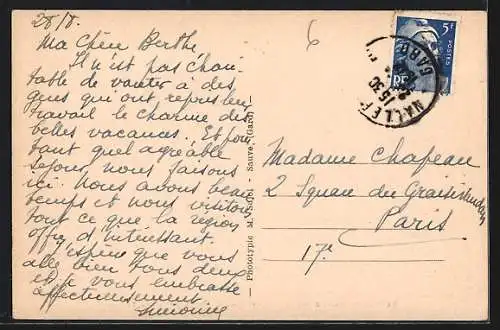 28/8.
Ma Chère Berthe
Il n'est pas chari-
table de vanter à des
gens qui ont repris leur
travail le charme des
belles vacances. Et pour
tant quel agréable
séjour nous faisons
ici. Nous avons beau
temps et nous visitons
tout ce que la région
offre d'intéressant.
J'espère que vous
allez bien tous deux
et je vous embrasse
affectueusement
Phototypie M. Sauve (Gard)
6
5F
POSTES
RF
15 30
GARD
Madame Chapeau
2 Square du Graisivaudan
Paris
17e